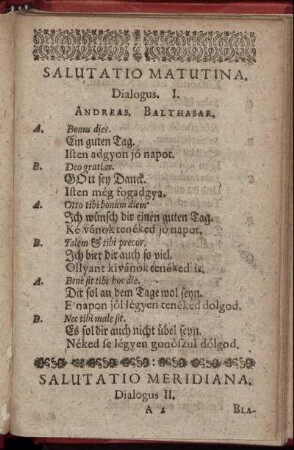 SALUTATIO MATUTINA.
Dialogus. I.
ANDREAS. BALTHASAR.
A. Bonus dies.
Ein guten Tag.
Isten adgyon jó napot.
B. Deo gratias.
GOtt sey Danck.
Isten még fogadgya.
A. Otto tibi bonum diem
Jch wünsch dir einen guten Tag.
Ké vánok tenéked jó napot.
B. Talem & tibi precor.
Jch biet dir auch so viel.
Ollyant kivánok tenéked is.
A. Bene sit tibi hoc die.
Dir sol an dem Tage wol seyn.
E napon jól légyen tenéked dolgod.
B. Nec tibi male sit.
Es sol dir auch nicht übel seyn.
Néked se légyen gonószul dólgod.
SALUTATIO MERIDIANA.
Dialogus II.
A 2 BLA-